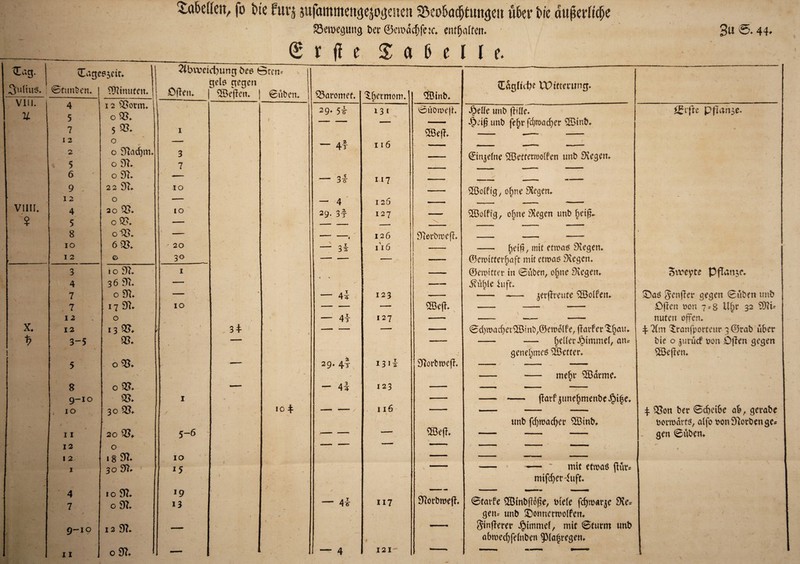 Tabellen, so die kurz zusammengezogenen Beobachtungen über die äußerliche
Bewegung der Gewächse ꝛc. enthalten. Zu S. 44.
Erste Tabelle.
Tag. Tageszeit. Abweichung des Stengels gegen Baromet. Thermom. Wind. Tägliche Witterung.
Julius. Stunden. Minuten. Osten. Westen. Süben.
VIII. 4 12 Vorm. 29. 5½ 131 Südwest. Helle und stille. Erste Pflanze.
♃ 5 0 V. — — — — Heiß und sehr schwacher Wind.
7 5 V. 1 West. — — — —
12 0 — — 4¾ 116 — — — — —
2 0 Nachm. 3 — Einzelne Wetterwolken und Regen.
5 0 N. 7 — — — — —
6 0 N. — — — — — —
9 22 N. 10 — 3½ 117 — Wolkig, ohne Regen.
12 0 — — 4 126 — — — — —
VIIII. 4 20 V. 10 29. 3¾ 127 — Wolkig, ohne Regen und heiß.
♀ 5 0 V. — — — — — — — —
8 0 V. — — —, 126 Nordwest. — — — —
10 6 V. 20 — 3½ 116 — — heiß, mit etwas Regen.
12 0 30 — — — Gewitterhaft mit etwas Regen.
3 10 N. 1 — Gewitter in Süden, ohne Regen. Zweyte Pflanze.
4 36 N. — — Kühle Luft.
7 0 N. — — 4¼ 123 — — — zerstreute Wolken. Das Fenster gegen Süden und
7 17 N. 10 — — — West. — — — — Osten von 7=8 Uhr 32 Mi=
12 0 — 4½ 127 — — — — — nuten offen.
X. 12 13 V. 3‡ — — — — Schwacher Wind, Gewölke, starker Thau. ‡ Am Transporteur 3 Grab über
♄ 3-5 V. — — — heller Himmel, an= die 0 zurück von Osten gegen
genehmes Wetter. Westen.
5 0 V. — 29. 4⅔ 131½ Nordwest. — — — —
— — mehr Wärme.
8 0 V. — — 4¾ 123 — — — — —
9-10 V. 1 — — — stark zunehmende Hitze.
10 30 V. 10‡ — — 116 — — — — — ‡ Von der Scheibe ab, gerade
und schwacher Wind. vorwärts, also von Norden ge=
11 20 V. 5-6 — — — West. — — — — gen Süben.
12 0 — — — — — — — —
12 18 N. 10 — — — — —
1 30 N. 15 — — — — mit etwas stür=
mischer Luft.
4 10 N. 19 — — — — — — — —
7 0 N. 13 — 4⅛ 117 Nordwest. Starke Windstöße, viele schwarze Re=
gen= und Donnerwolken.
9-10 12 N. — — Finsterer Himmel, mit Sturm und
abwechselnden Platzregen.
11 0 N. — — 4 121 — — — — —